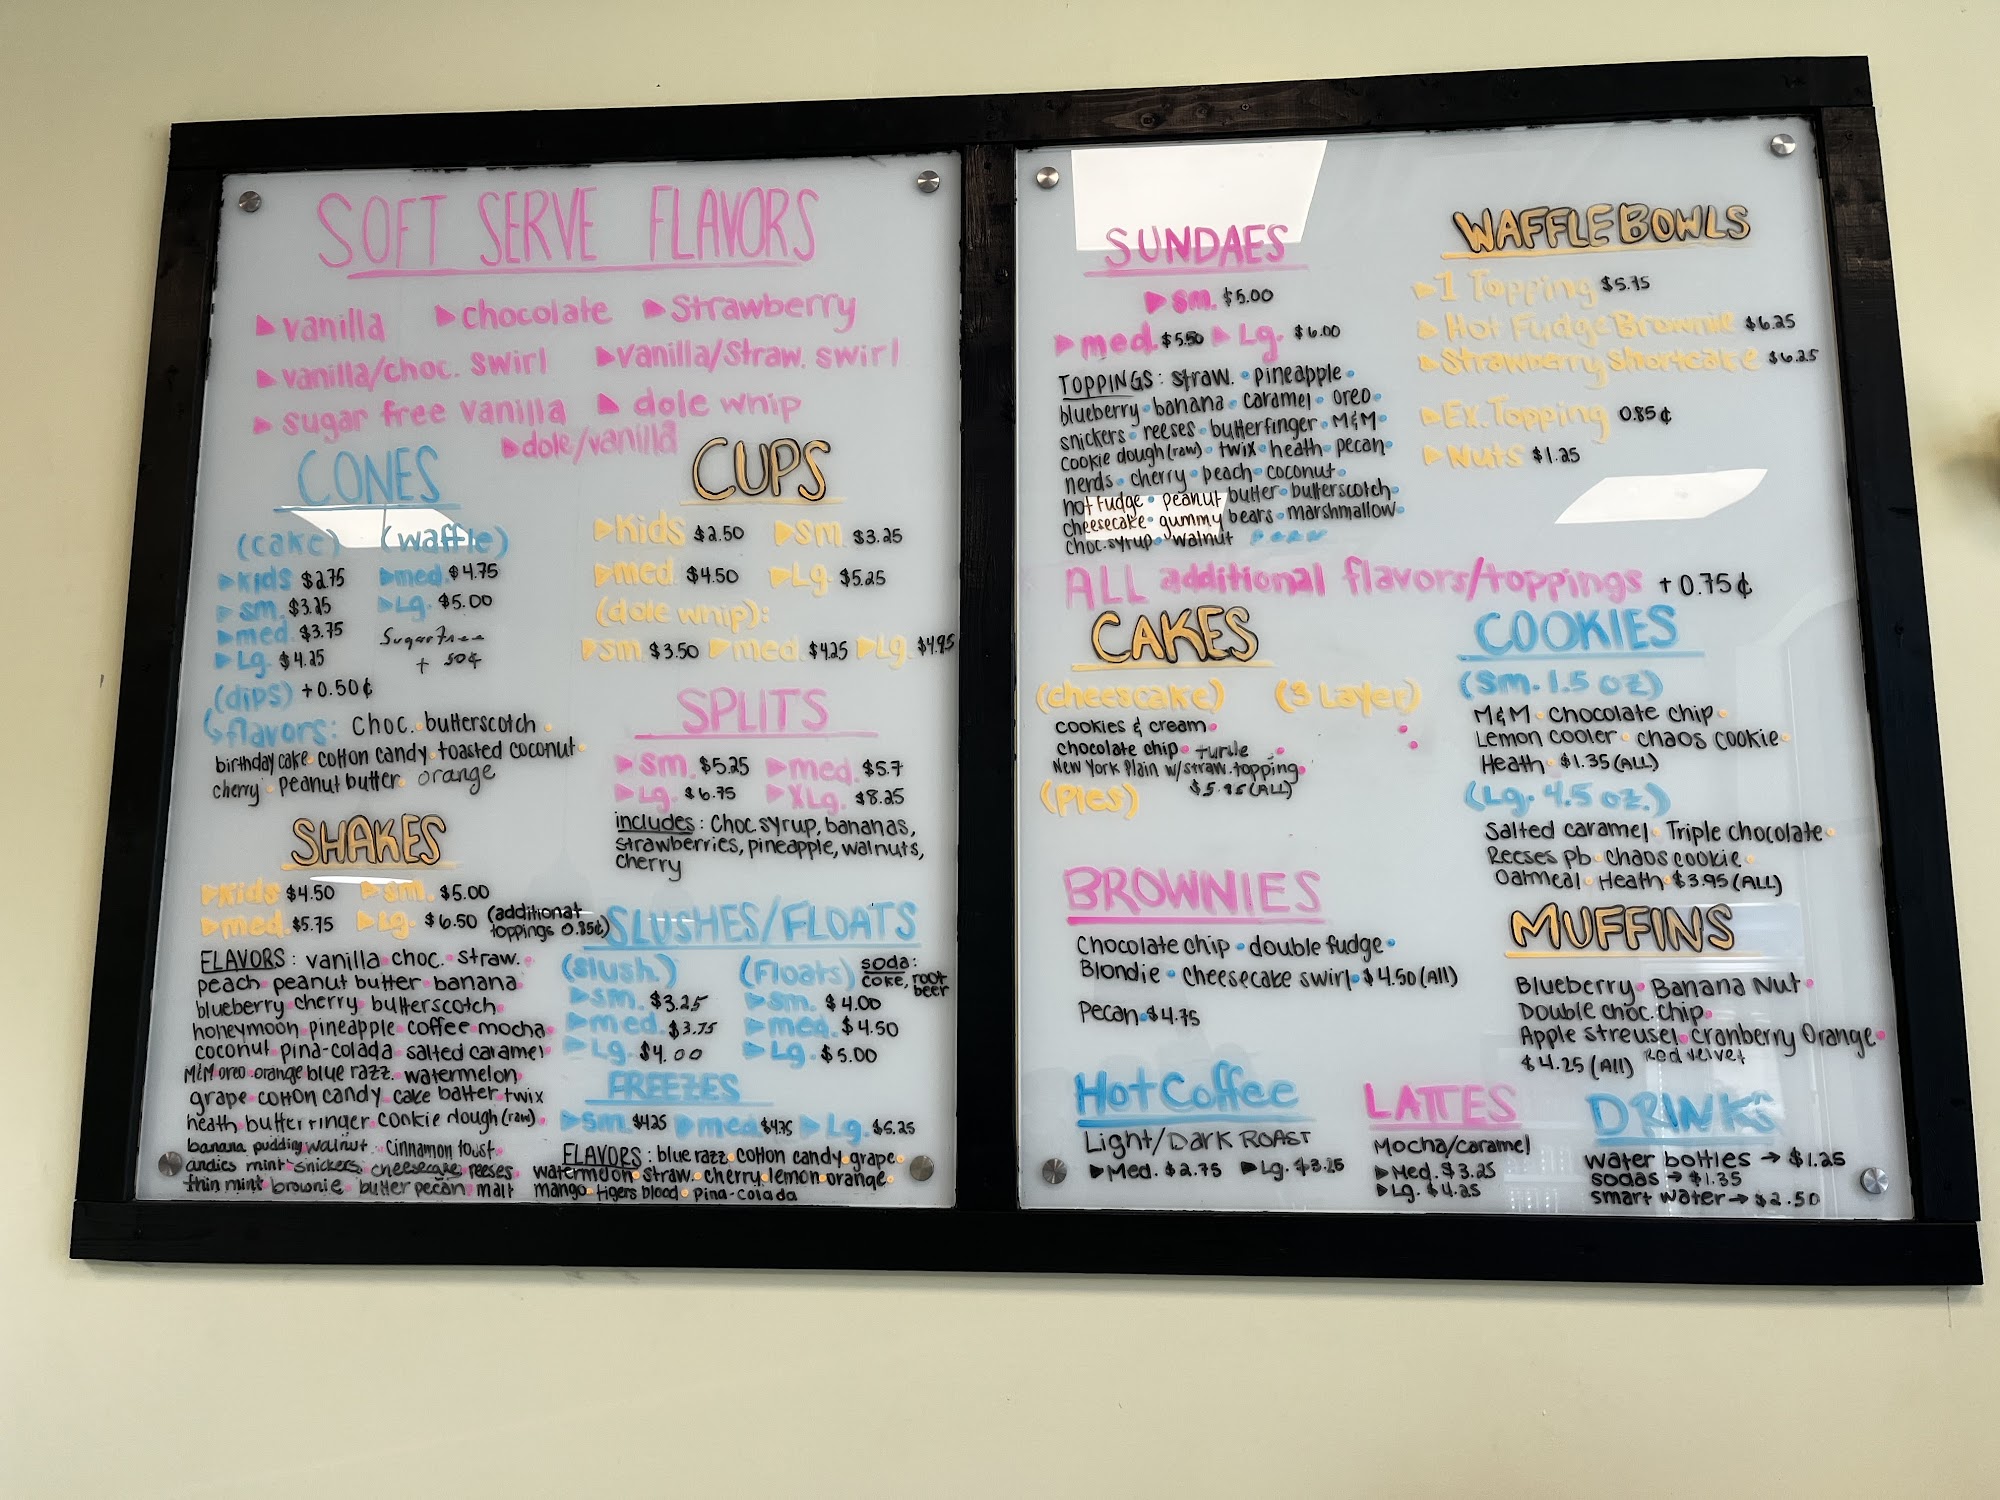 SOFT SERVE FLAVORS
vanilla chocolate strawberry
vanilla/choc. swirl vanilla/straw. swirl
sugar free vanilla dole whip
dole/vanilla
CONES
(cake) (waffle)
kids $2.75 med. $4.75
sm. $3.25 Lg. $5.00
med. $3.75 Sugar free
Lg. $4.25 + 50¢
(dips) +0.50¢
flavors: choc. butterscotch
birthday cake cotton candy toasted coconut
cherry peanut butter orange
CUPS
kids $2.50 sm. $3.25
med. $4.50 Lg. $5.25
(dole whip):
sm $3.50 med. $4.25 Lg. $4.95
SPLITS
sm. $5.25 med. $5.7
Lg. $6.75 XLg. $8.25
includes: choc. syrup, bananas,
strawberries, pineapple, walnuts,
cherry
SHAKES
kids $4.50 sm. $5.00
med. $5.75 Lg. $6.50 (additional
toppings 0.85¢)
FLAVORS: vanilla choc. straw.
peach peanut butter banana
blueberry cherry butterscotch
honeymoon pineapple coffee mocha
coconut pina-colada salted caramel
M&M oreo orange blue razz. watermelon
grape cotton candy cake batter twix
heath butterfinger cookie dough (raw)
banana pudding walnut cinnamon toast
andies mint snickers cheesecake reeses
thin mint brownie butter pecan malt
SLUSHES/FLOATS
(slush.) (Floats) soda:
coke, root
beer
sm. $3.25 sm. $4.00
med. $3.75 med. $4.50
Lg. $4.00 Lg. $5.00
FREEZES
sm. $4.25 med $4.75 Lg. $5.25
FLAVORS: blue razz cotton candy grape
watermelon straw cherry lemon orange
mango tigers blood pina-colada
SUNDAES
sm. $5.00
med. $5.50 Lg. $6.00
TOPPINGS: straw. pineapple
blueberry banana caramel oreo
snickers reeses butterfinger M&M
cookie dough (raw) twix heath pecan
nerds cherry peach coconut
hot fudge peanut butter butterscotch
cheesecake gummy bears marshmallow
choc. syrup walnut
WAFFLE BOWLS
1 Topping $5.75
Hot Fudge Brownie $6.25
Strawberry shortcake $6.25
Ex. Topping 0.85¢
Nuts $1.25
ALL additional flavors/toppings + 0.75¢
CAKES
(cheescake) (3 Layer)
cookies & cream
chocolate chip turtle
New York Plain w/straw. topping
(Pies)
COOKIES
(sm. 1.5 oz)
M&M chocolate chip
Lemon cooler chaos cookie
Heath $1.35 (ALL)
(Lg. 4.5 oz.)
Salted caramel Triple chocolate
Reeses pb chaos cookie
Oatmeal Heath $3.95 (ALL)
BROWNIES
Chocolate chip double fudge
Blondie cheesecake swirl $4.50 (All)
Pecan $4.75
MUFFINS
Blueberry Banana Nut
Double choc. chip
Apple streusel cranberry Orange
$4.25 (All) Red velvet
Hot Coffee
Light/DARK ROAST
Med. $2.75 Lg. $3.25
LATTES
Mocha/caramel
Med. $3.25
Lg. $4.25
DRINKS
water bottles → $1.25
sodas → $1.35
smart water → $2.50